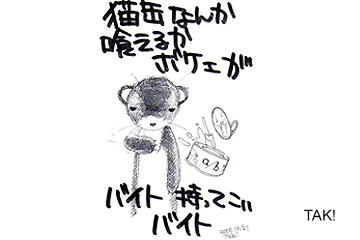 猫缶なんか
喰えるか
ボケェが
バイト 持ってこい
バイト
TAK!